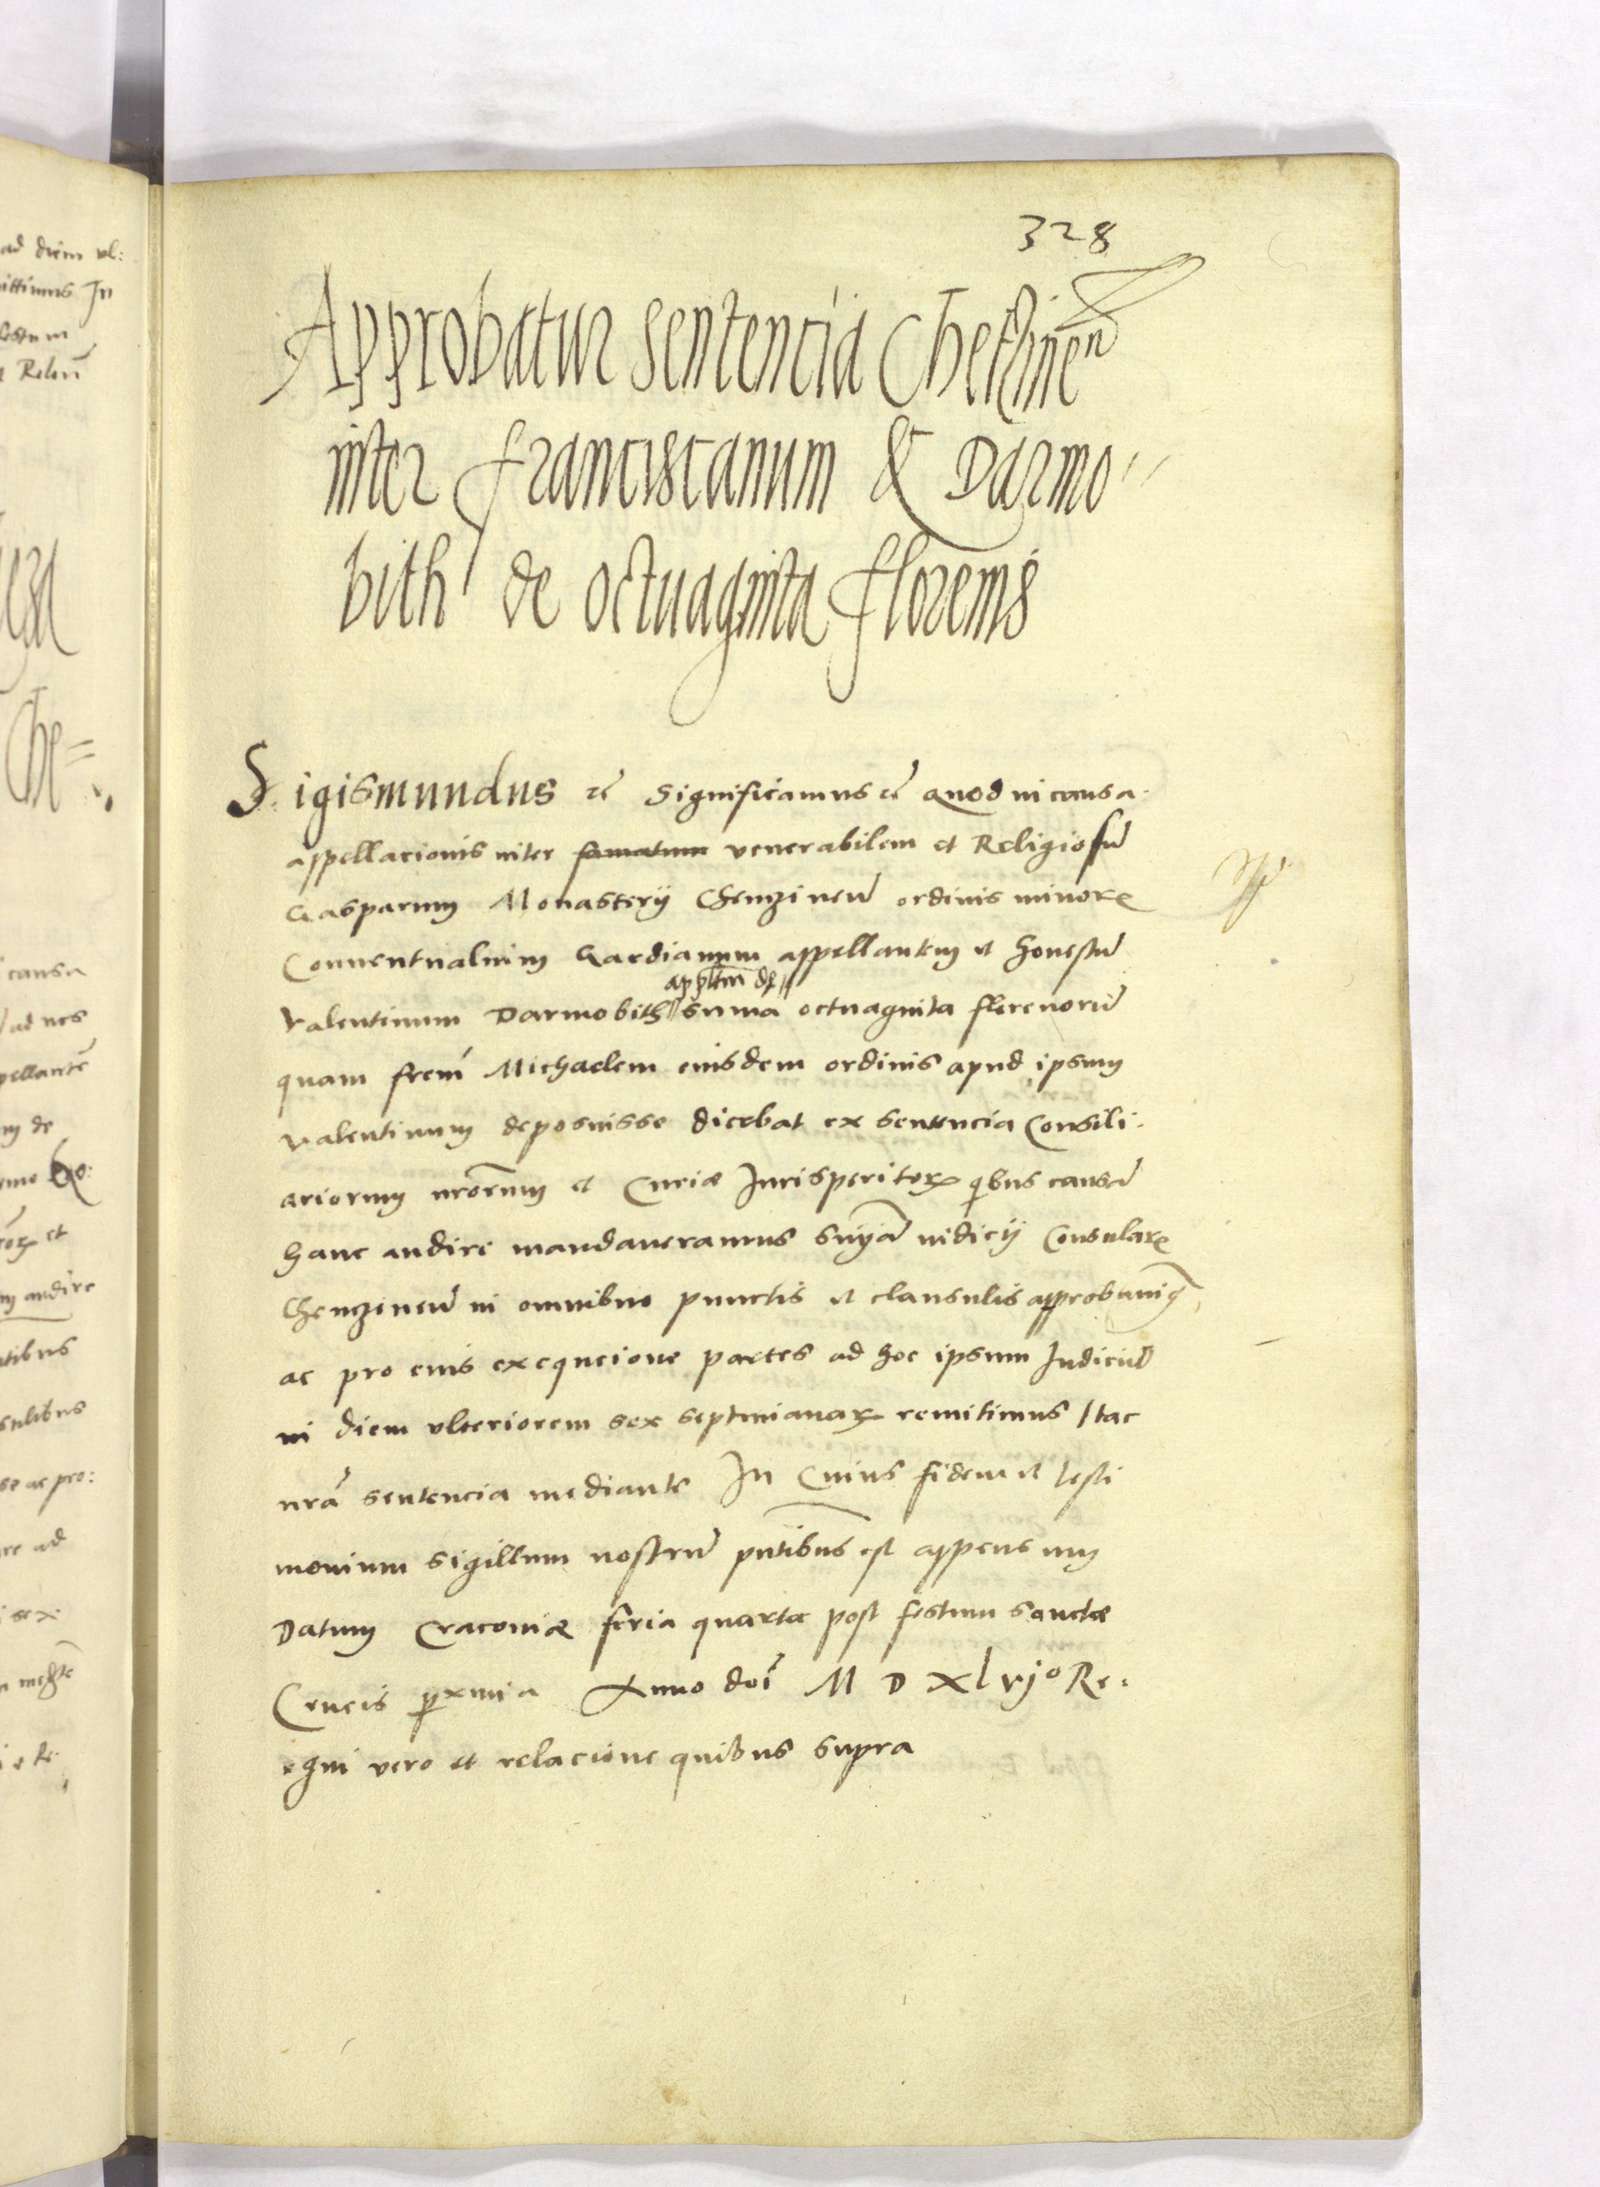 328
Approbatur sententia Chekzinen̄
inter franciscanum & Darmo-
bith de octuaginta florenis
Sigismundus ꝛc̄ Significamus ꝛc̄ Quod in causa
appellacionis inter famatum venerabilem et Religiosū
Gasparum Monasterij Chenzinen̄ ordinis minorꝝ
Conuentualium Gardianum appellantem et honestū
appltm̄ de
Valentinum Darmobith suma octuaginta florenorū
quam frem̄ Michaelem eiusdem ordinis apud ipsum
Valentinum deposuisse dicebat ex sentencia Consili-
ariorum nrōrum et Curiæ Jurisperitorꝝ qbus causā
hanc audire mandaueramus snīam iudicij Consularꝭ
Chenzinen̄ in omnibus punctis et clausulis approbauimꝰ
ac pro eius exequcione partes ad hoc ipsum Judiciū
in diem vlteriorem sex septimanarꝝ remitimus hac
nrā sentencia mediante In Cuius fidem et testi
monium sigillum nostrū pn̄tibus est appensum
Datum Cracouiæ feria quarta post festum sanctæ
Crucis ꝓxima Anno doī M D XLvjo Re-
gni vero et relacione quibus supra
ad diem vl:
ittimus In
Relōn̄
Che=
causa
ad nos
pellantē
m de
et
m audire
ntibus
sulibus
se ac pro:
re ad
sex